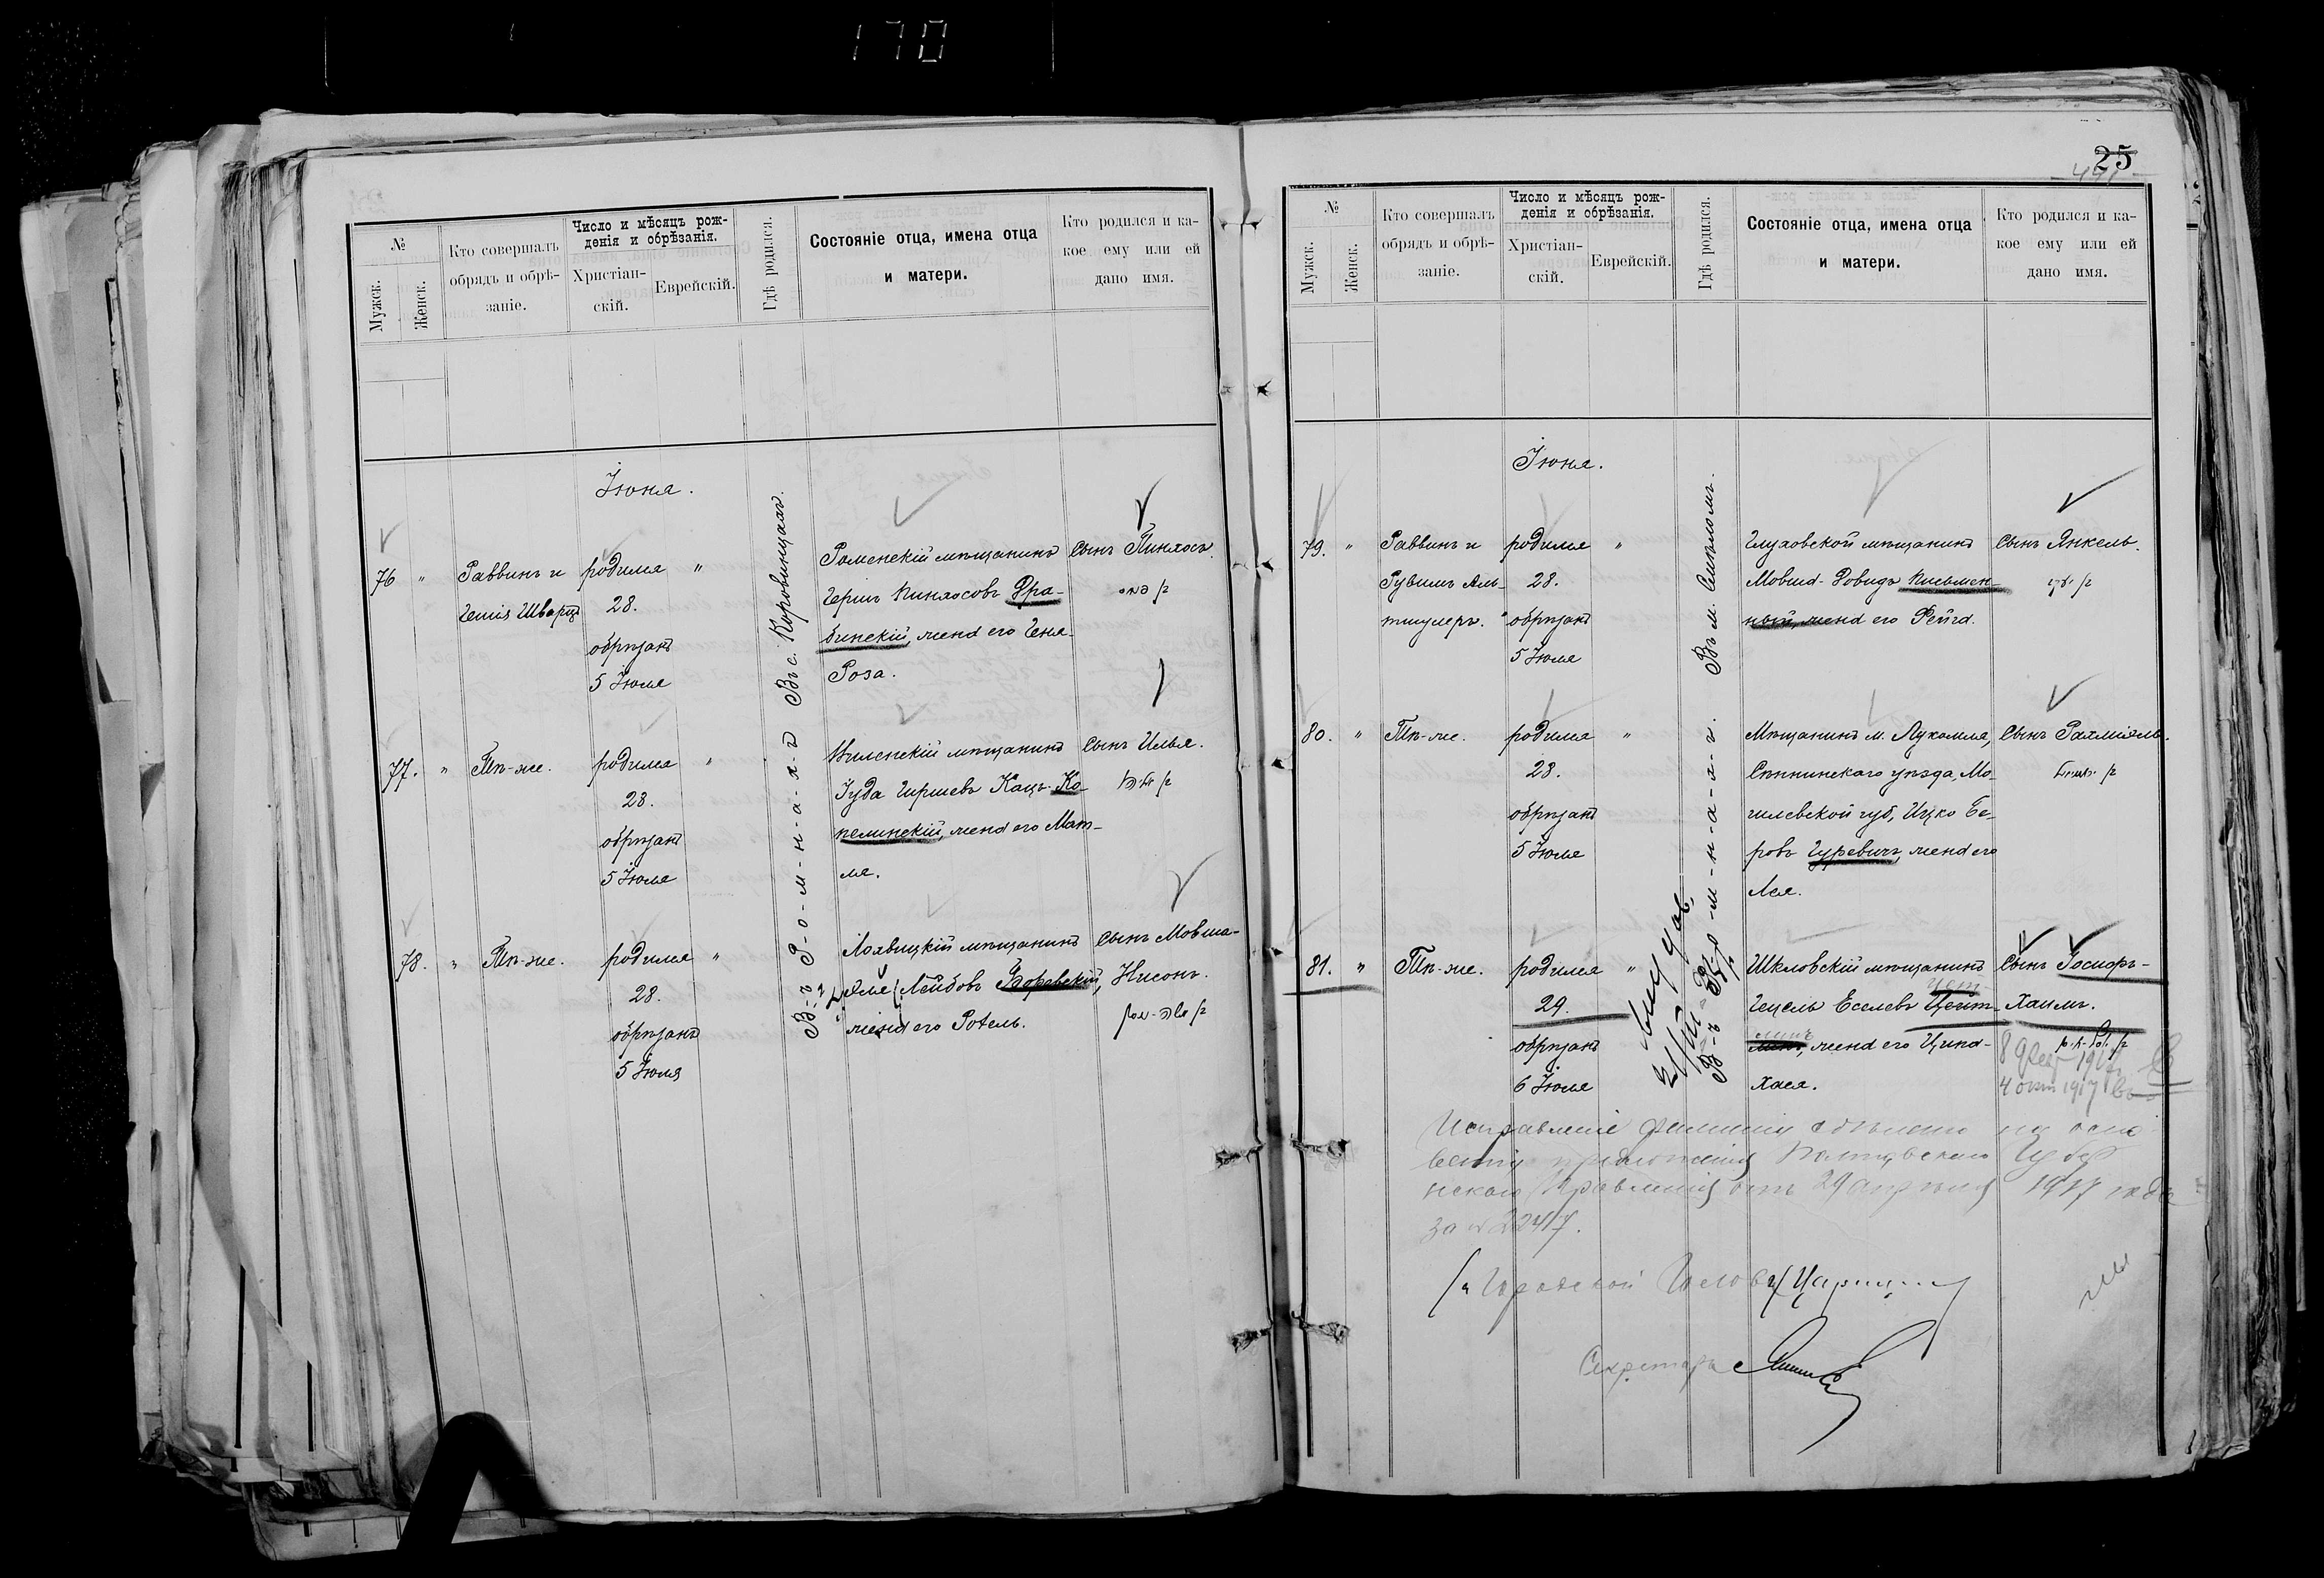 170
№
Мужск.
Женск.
Кто совершалъ
обрядъ и обрѣ-
заніе.
Число и мѣсяцъ рож-
денія и обрѣзанія.
Христіан-
скій.
Еврейскій.
Гдѣ родился.
Состояніе отца, имена отца
и матери.
Кто родился и ка-
кое ему или ей
дано имя.
Іюня.
76 "
Раввинъ и
Шварцъ
родился "
28.
обрѣзанъ
5 Іюля
Въ с. Коровинцахъ.
Роменскій мѣщанинъ
Гершъ Пинхосовъ Дра-
бинскій, жена его Геня-
Роза.
Сынъ Пинхосъ.
77. "
Тѣ-же.
родился "
28.
обрѣзанъ
5 Іюля
В-ъ Р-о-м-н-а-х-ъ
Виленскій мѣщанинъ
Іуда Гиршевъ Кацъ-Ко-
пелинскій, жена его Мат-
ля.
Сынъ Илья.
78. "
Тѣ-же.
родился "
28.
обрѣзанъ
5 Іюля
Лохвицкій мѣщанинъ
Лейбовъ Боревскій,
жена его Рохель.
Сынъ Мовша-
Нисонъ.
25
№
Мужск.
Женск.
Кто совершалъ
обрядъ и обрѣ-
заніе.
Число и мѣсяцъ рож-
денія и обрѣзанія.
Христіан-
скій.
Еврейскій.
Гдѣ родился.
Состояніе отца, имена отца
и матери.
Кто родился и ка-
кое ему или ей
дано имя.
Іюня.
79. "
Раввинъ и
Рувимъ Аль-
тшулеръ.
родился "
28.
обрѣзанъ
5 Іюля
Въ м. Смѣломъ.
Глуховской мѣщанинъ
Мовша-Довидъ Письмен-
ный, жена его Рейза.
Сынъ Янкель.
80. "
Тѣ-же.
родился "
28.
обрѣзанъ
5 Іюля
В-ъ Р-о-м-н-а-х-ъ.
Мѣщанинъ м. Лукомля,
Сѣннинскаго уѣзда, Мо-
гилевской губ., Ицко Бе-
ровъ Гуревичъ, жена его
Лея.
Сынъ Рахміэль.
81. "
Тѣ-же.
родился "
29.
обрѣзанъ
6 Іюля
Шкловскій мѣщанинъ
Гецель Еселевъ Цейт-
линъ, жена его Ципа-
Хася.
Сынъ Іосифъ-
Хаимъ.
4 окт 1917
Исправленіе фамиліи сдѣлано на осно
ваніи предложенія Полтавскаго Губер
нскаго Правленія отъ 29 апрѣля 1917 года
за № 22417.
Городской Голова
Секретарь